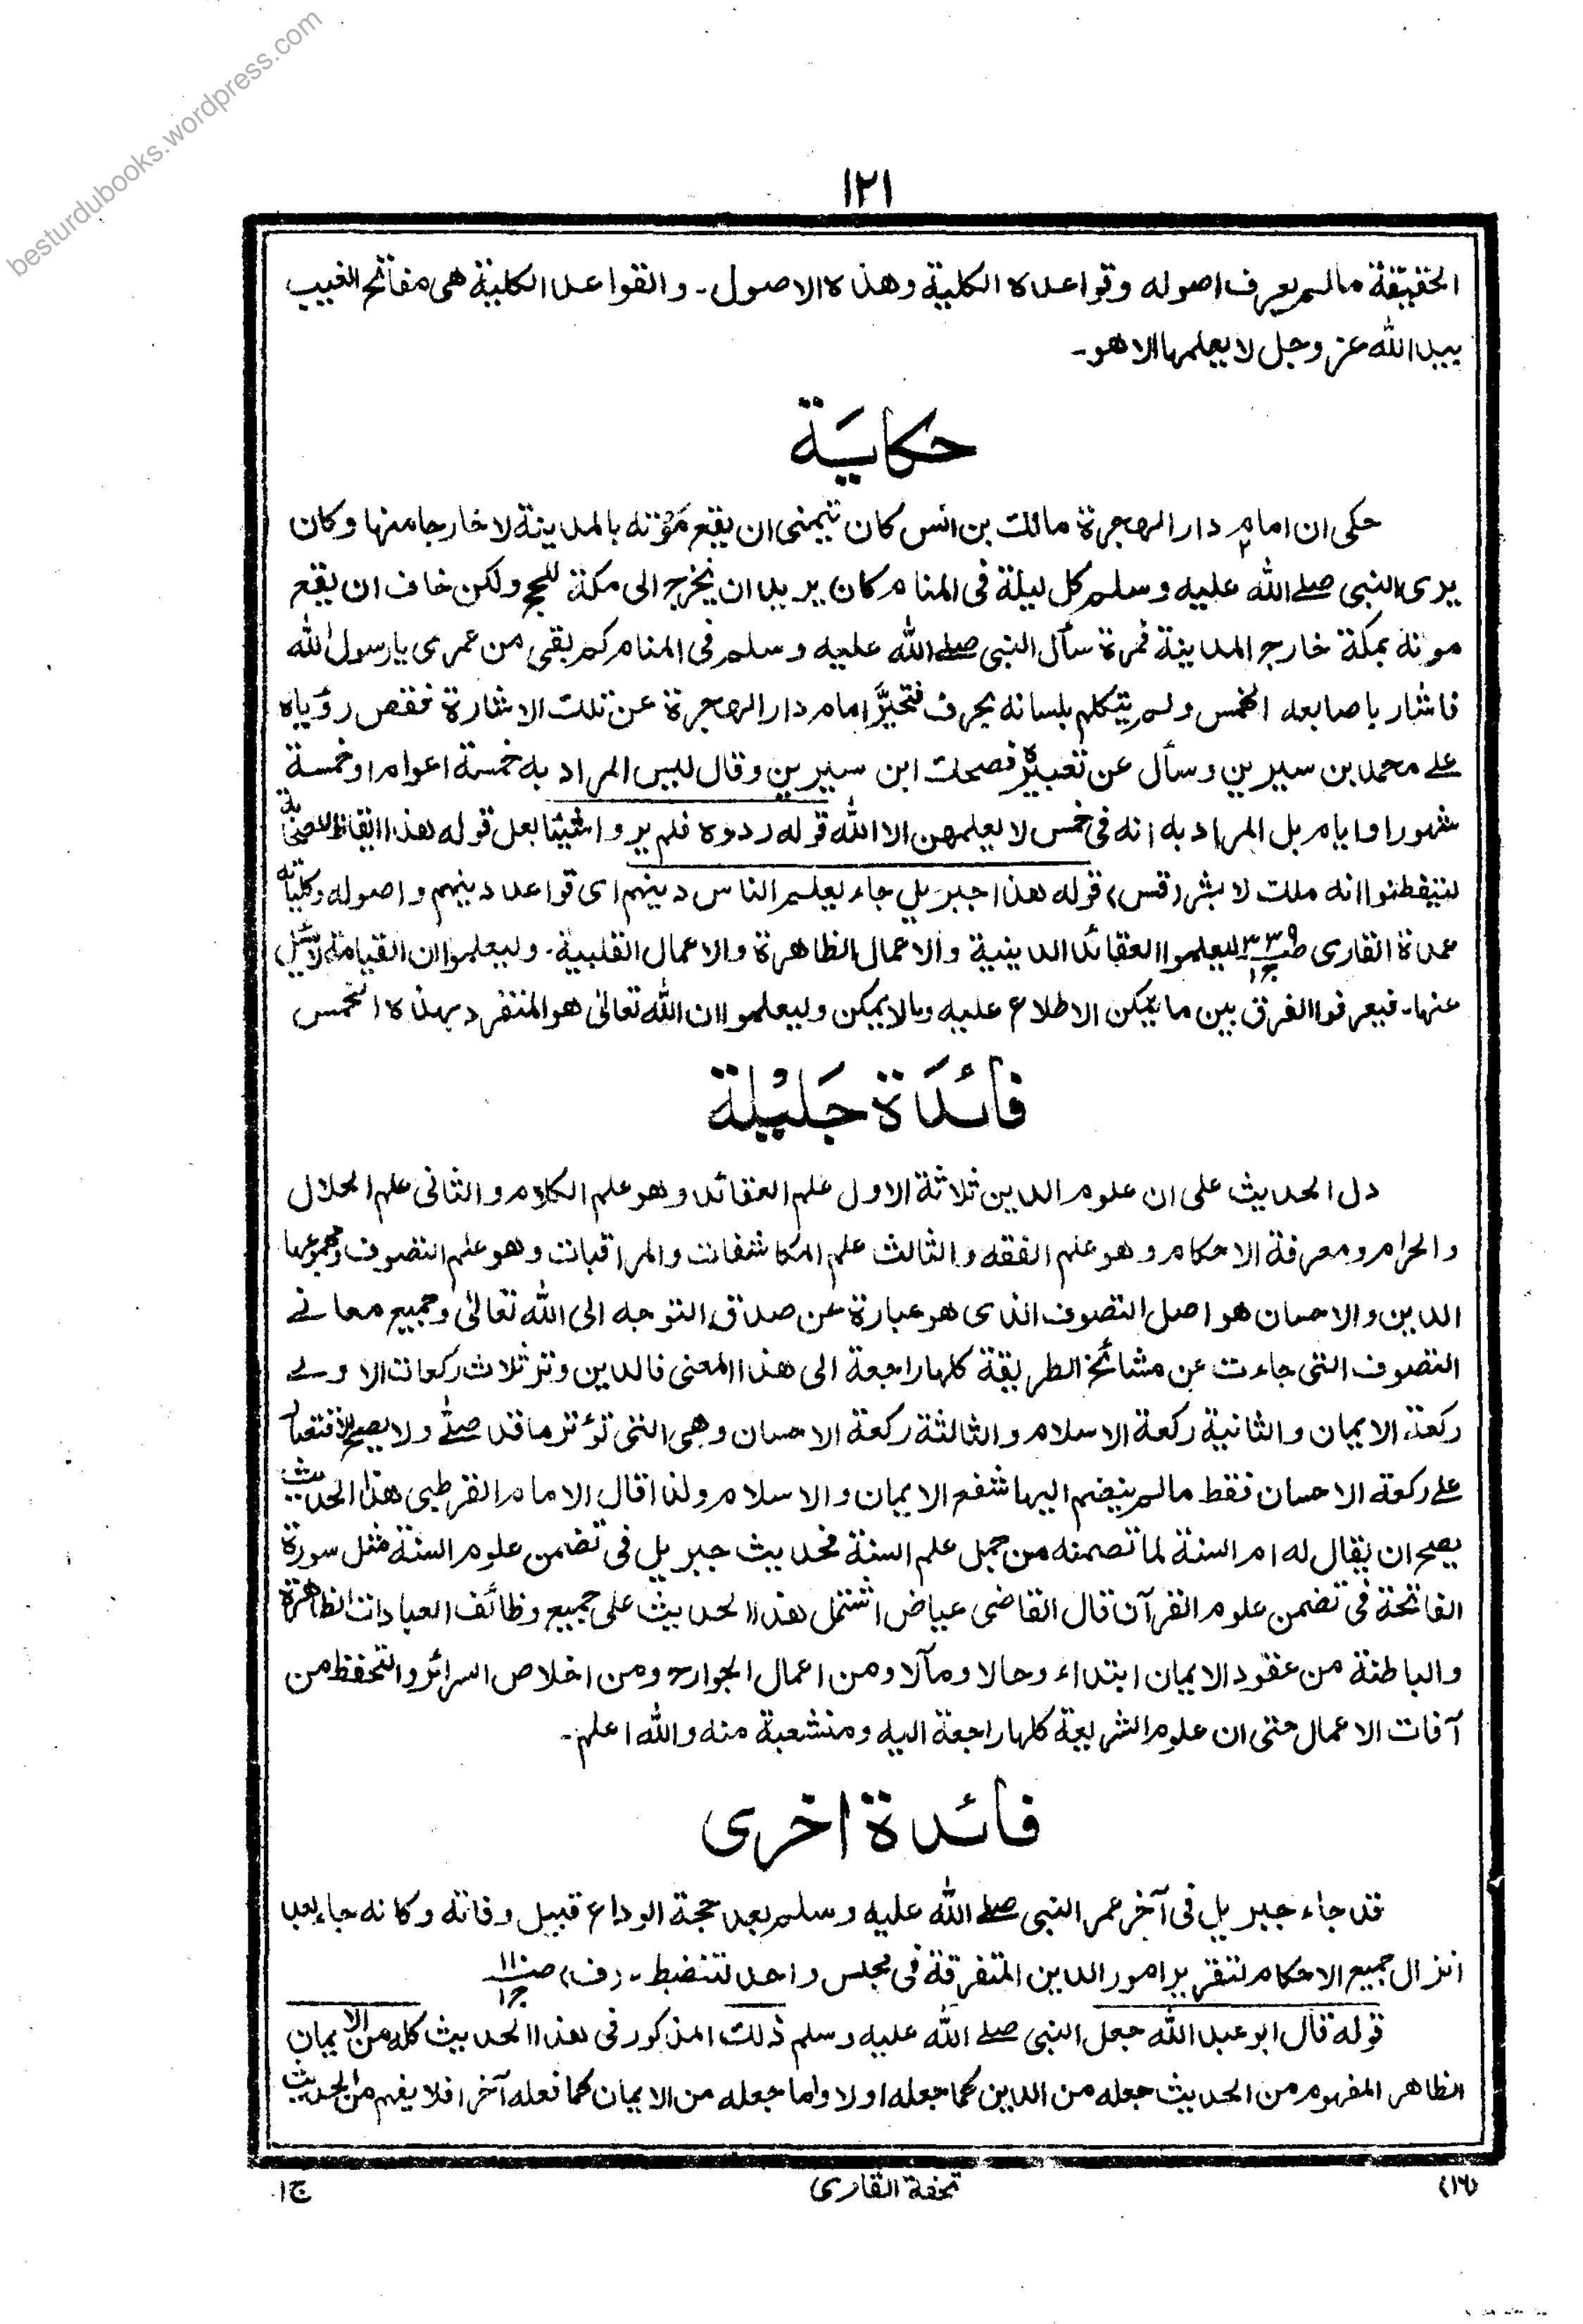 besturdubooks.wordpress.com
١٢١
الحقيقة مالم يعرف اصوله وقواعده الكلية وهذه الاصول۔ والقواعد الكلية هى مفاتح الغيب
بيد الله عز وجل لا يعلمها الا هو۔
حكايَة
حكى ان امام دار الهجرة مالك بن انس كان يتمنى ان يقع مَوْته بالمدينة لا خارجا منها وكان
يرى النبى صلے الله عليه وسلم كل ليلة فى المنام كان يريد ان يخرج الى مكة للحج ولكن خاف ان يقع
موته بمكة خارج المدينة فمرة سأل النبى صلے الله عليه وسلم فى المنام كم بقى من عمرى يا رسول الله
فاشار باصابعه الخمس ولم يتكلم بلسانه بحرف فتحيَّر امام دار الهجرة عن تلك الاشارة فقص رؤياه
علے محمد بن سيرين وسأل عن تعبيره فضحك ابن سيرين وقال ليس المراد به خمسة اعوام او خمسة
شهور او ايام بل المراد به انه فى خمس لا يعلمهن الا الله قوله ردوه فلم يروا شيئا لعل قوله هذا ايقاظ للصحابة
ليتفطنوا انه ملك لا بشر (قس) قوله هذا جبريل جاء يعلم الناس دينهم اى قواعد دينهم واصوله وكلياته
عمدة القارى ص٣٣٩ ج١ ليعلموا العقائد الدينية والاعمال الظاهرة والاعمال القلبية۔ وليعلموا ان القيامة لا تسئل
عنها۔ فيعرفوا الفرق بين ما يمكن الاطلاع عليه ومالا يمكن وليعلموا ان الله تعالى هو المتفرد بهذه الخمس
فائدَة جَليْلة
دل الحديث على ان علوم الدين ثلاثة الاول علم العقائد وهو علم الكلام والثانى علم الحلال
والحرام ومعرفة الاحكام وهو علم الفقه والثالث علم المكاشفات والمراقبات وهو علم التصوف ومجموعها
الدين والاحسان هو اصل التصوف الذى هو عبارة عن صدق التوجه الى الله تعالى وجميع معانے
التصوف التى جاءت عن مشائخ الطريقة كلها راجعة الى هذا المعنى فالدين وتر ثلاث ركعات الاولے
ركعة الايمان والثانية ركعة الاسلام والثالثة ركعة الاحسان وهى التى توتر ما قد صلّے ولا يصح الاقتصار
علے ركعة الاحسان فقط مالم ينضم اليها شفع الايمان والاسلام ولذا قال الامام القرطبى هذا الحديث
يصح ان يقال له ام السنة لما تضمنه من جمل علم السنة فحديث جبريل فى تضمن علوم السنة مثل سورة
الفاتحة فى تضمن علوم القرآن قال القاضى عياض اشتمل هذا الحديث على جميع وظائف العبادات الظاهرة
والباطنة من عقود الايمان ابتداء وحالا ومآلا ومن اعمال الجوارح ومن اخلاص السرائر والتحفظ من
آفات الاعمال حتى ان علوم الشريعة كلها راجعة اليه ومنشعبة منه والله اعلم۔
فائدة اخرى
قد جاء جبريل فى آخر عمر النبى صلے الله عليه وسلم بعد حجة الوداع قبيل وفاته وكانه جاء بعد
انزال جميع الاحكام لتقرير امور الدين المتفرقة فى مجلس واحد لتنضبط۔ (ف) ج١
قوله قال ابو عبد الله جعل النبى صلے الله عليه وسلم ذلك المذكور فى هذا الحديث كله من الايمان
الظاهر المفهوم من الحديث جعله من الدين كما جعله اولا واما جعله من الايمان كما فعله آخرا فلا يفهم من الحديث
(١٦)
تحفة القارى
ج١